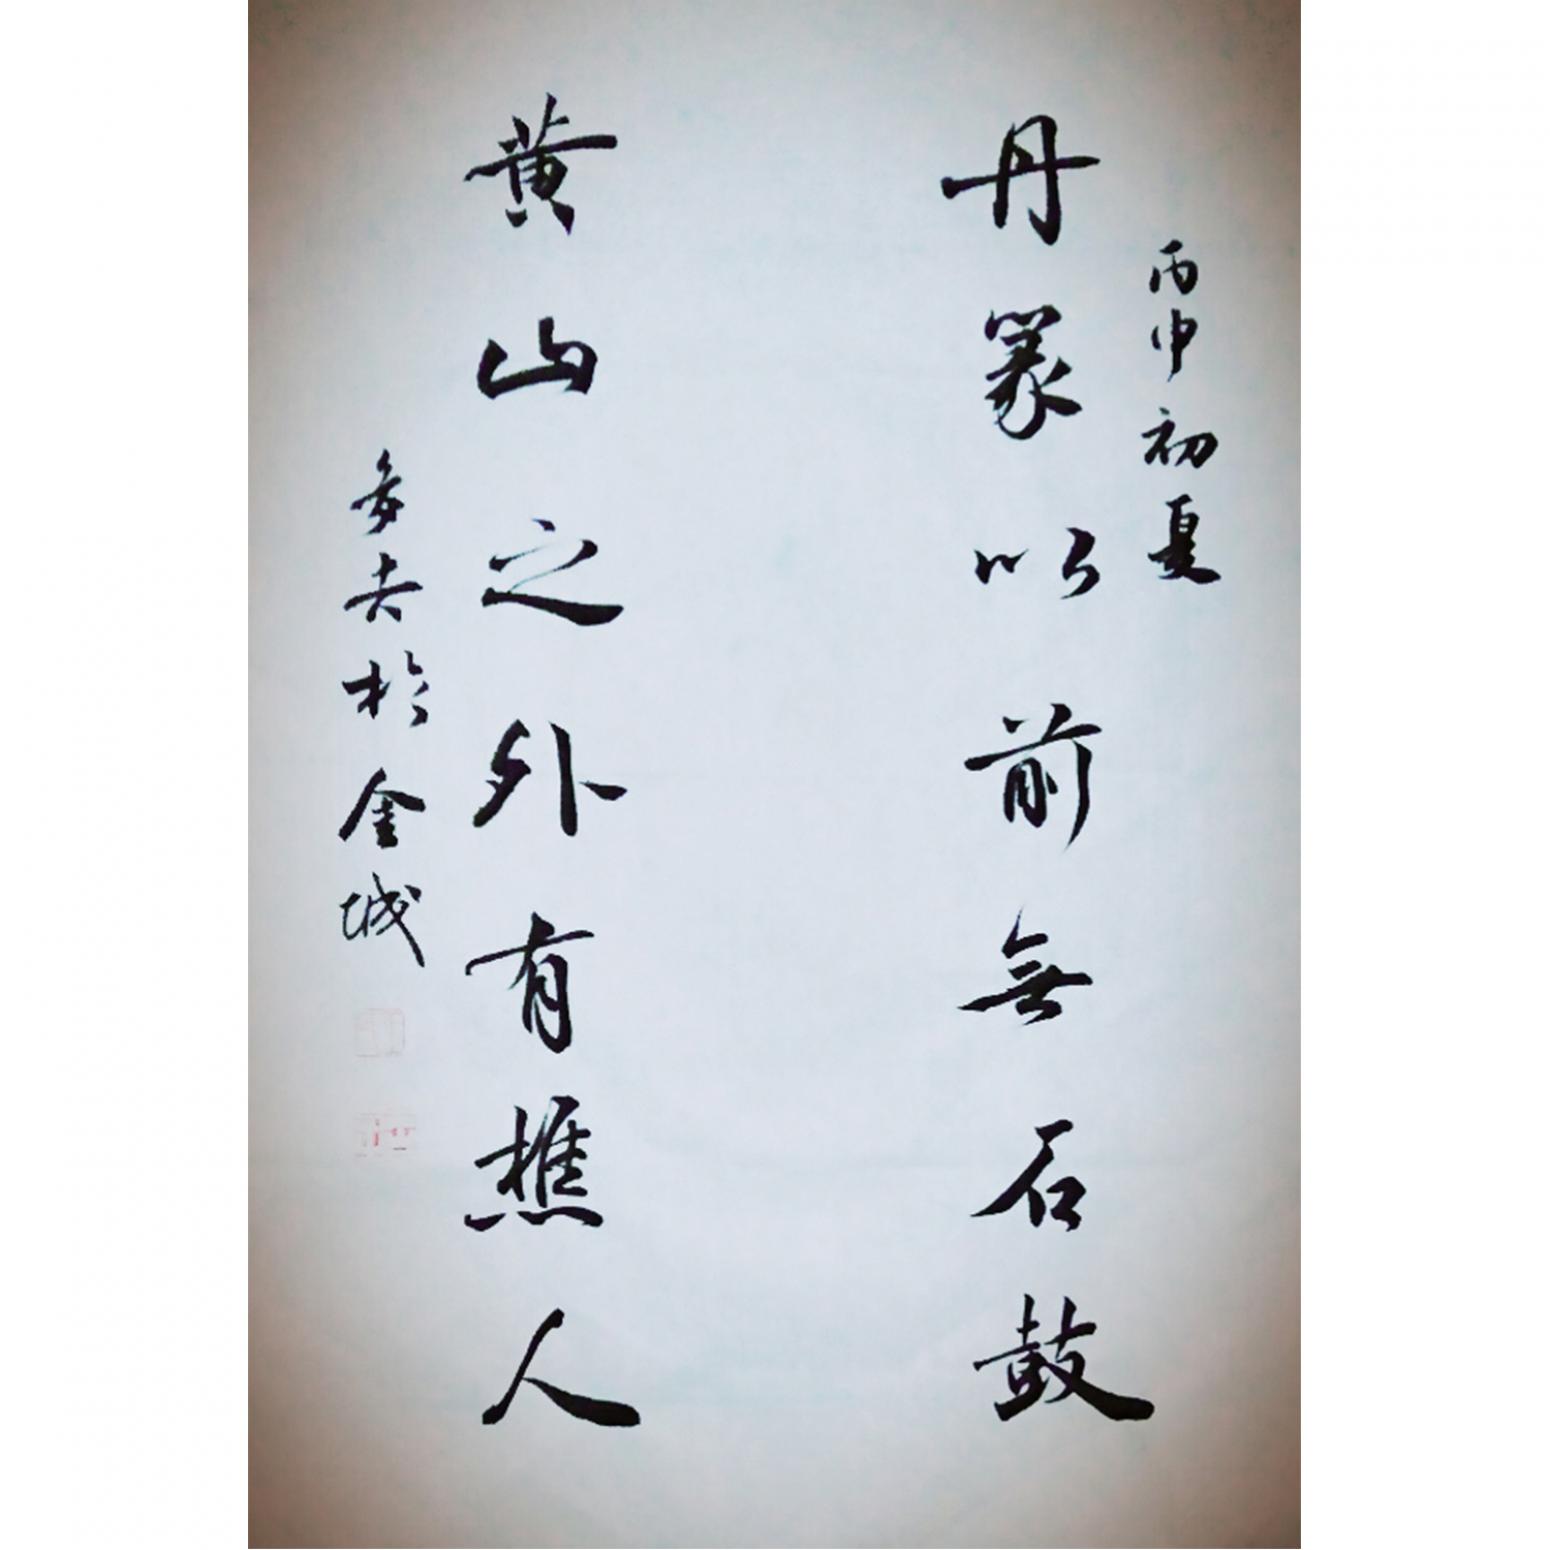 丙申初夏
丹篆以前無石鼓
黄山之外有樵人
於金城